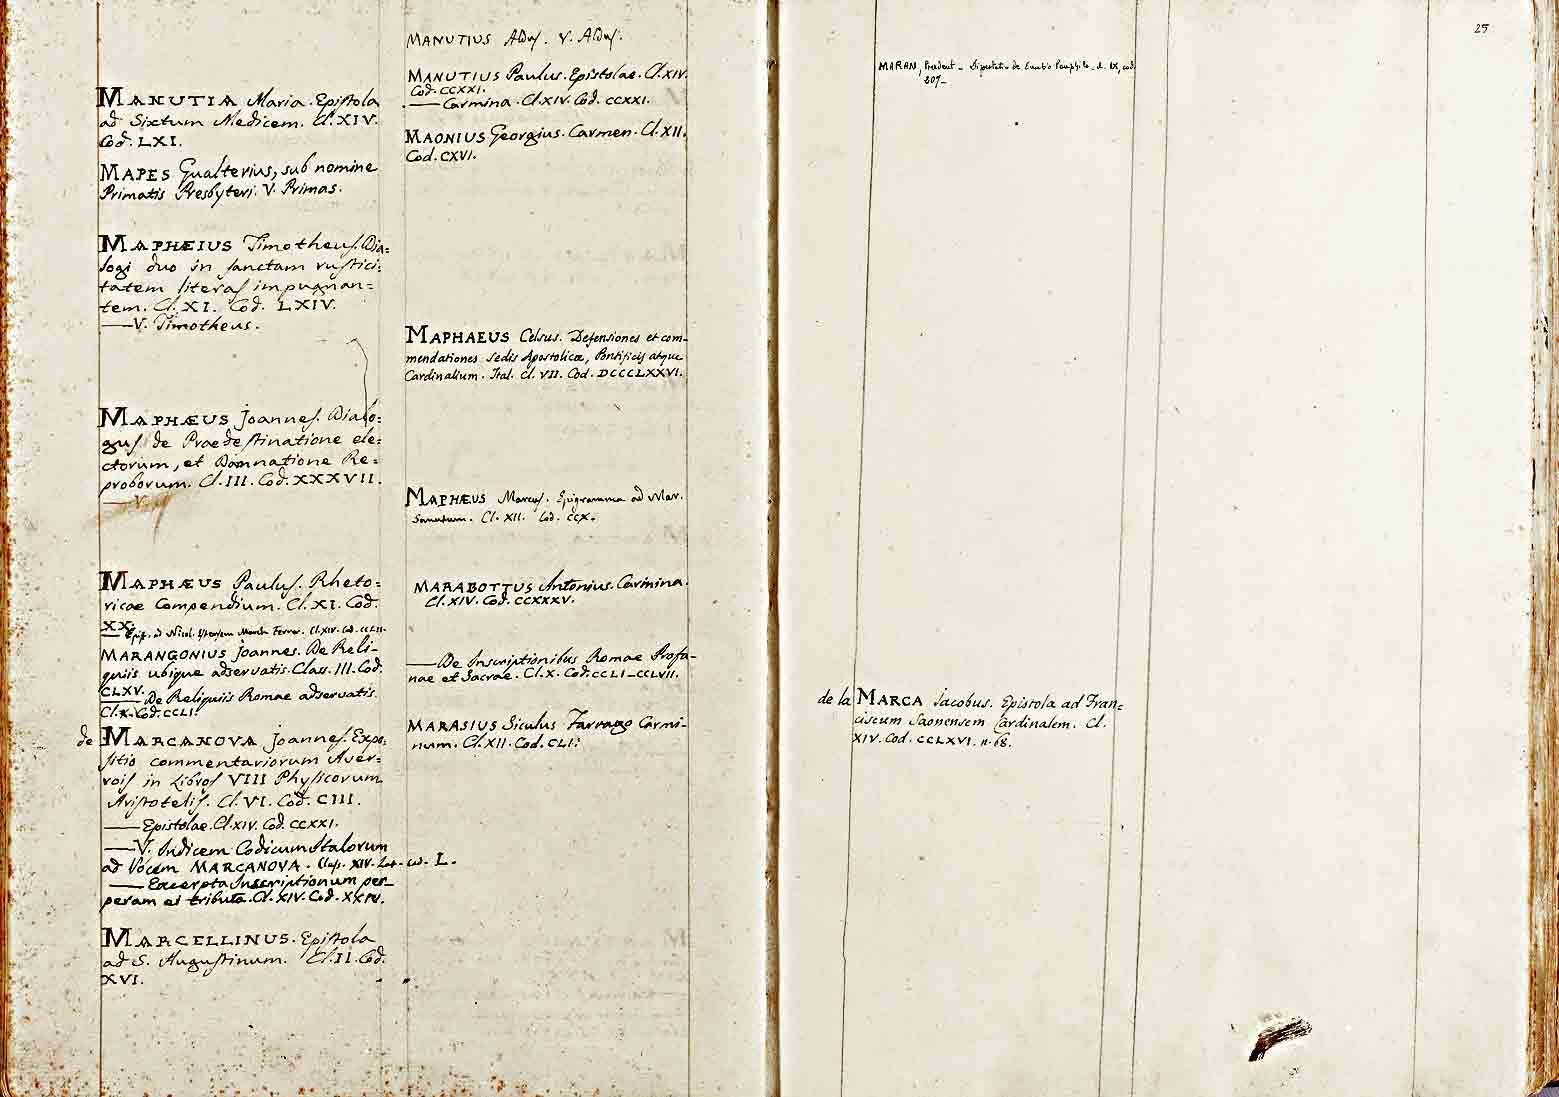 MANUTIA Maria. Epistola
ad Sixtum Medicem. Cl. XIV.
Cod. LXI.
MAPES Gualterius, sub nomine
Primatis Presbyteri. V. Primas.
MAPHÆIUS Timotheus. Dia=
logi duo in sanctam rustici=
tatem literas impugnan=
tem. Cl. XI. Cod. LXIV.
—V. Timotheus.
MAPHÆUS Joannes. Dialo=
gus de Praedestinatione ele=
ctorum, et Damnatione Re=
proborum. Cl. III. Cod. XXXVII.
—V.
MAPHÆUS Paulus. Rheto=
ricae Compendium. Cl. XI. Cod.
XX.
— Epist. ad Nicol. Cl. XIV. Cod. CCLII.
MARANGONIUS Joannes. De Reli-
quiis ubique adservatis. Class. III. Cod.
CLXV.
— De Reliquiis Romae adservatis.
Cl. X. Cod. CCLI.
de MARCANOVA Joannes. Expo=
sitio commentariorum Aver=
rois in Libros VIII Physicorum
Aristotelis. Cl. VI. Cod. CIII.
— Epistolae. Cl. XIV. Cod. CCXXI.
— V. Indicem Codicum Italorum
ad Vocem MARCANOVA. Class. XIV. Lat. Cod. L.
— Excerpta Inscriptionum per-
peram ei tributa. Cl. XIV. Cod. XXIV.
MARCELLINUS. Epistola
ad S. Augustinum. Cl. II. Cod.
XVI.
MANUTIUS Aldus. V. Aldus.
MANUTIUS Paulus. Epistolae. Cl. XIV.
Cod. CCXXI.
— Carmina. Cl. XIV. Cod. CCXXI.
MAONIUS Georgius. Carmen. Cl. XII.
Cod. CXVI.
MAPHAEUS Celsus. Defensiones et com-
mendationes sedis Apostolicæ, Pontificis atque
Cardinalium. Ital. Cl. VII. Cod. DCCCLXXVI.
MAPHÆUS Marcus. Epigramma ad Mar.
Sanutum. Cl. XII. Cod. CCX.
MARABOTTUS Antonius. Carmina.
Cl. XIV. Cod. CCXXXV.
— De Inscriptionibus Romae Profa-
nae et Sacrae. Cl. X. Cod. CCLI-CCLVII.
MARASIUS Siculus Farrago Carmi-
num. Cl. XII. Cod. CLI.
25
MARAN, Prudent - de Eusebio - IX, cod.
307-
de la MARCA Jacobus. Epistola ad Fran=
ciscum Saonensem Cardinalem. Cl.
XIV. Cod. CCLXVI. n. 68.